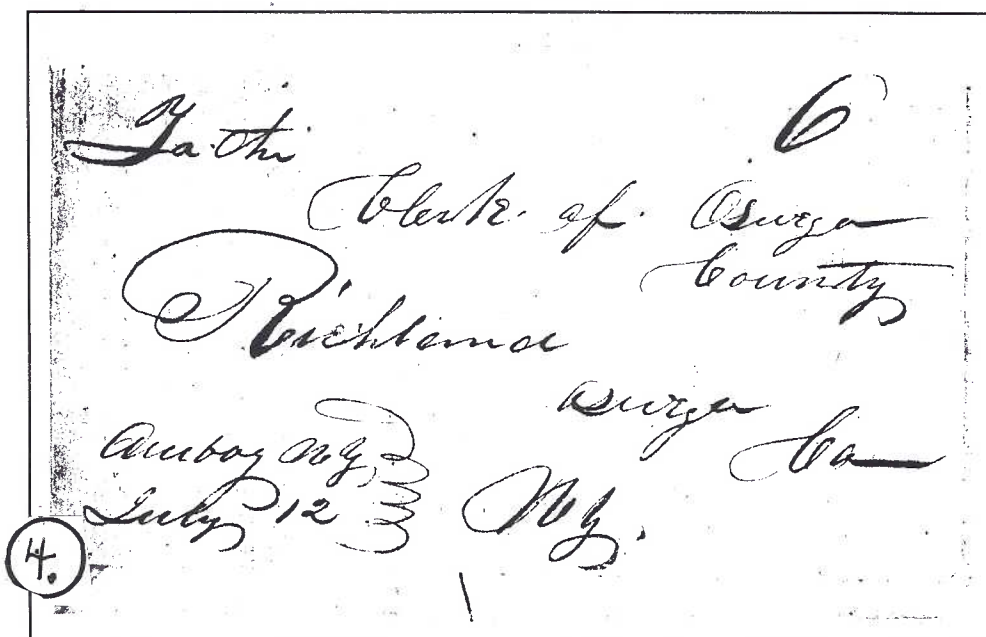 To the 6
Clerk of Oswego
County
Richland
Oswego
Co
Amboy NY
July 12
NY.
4.